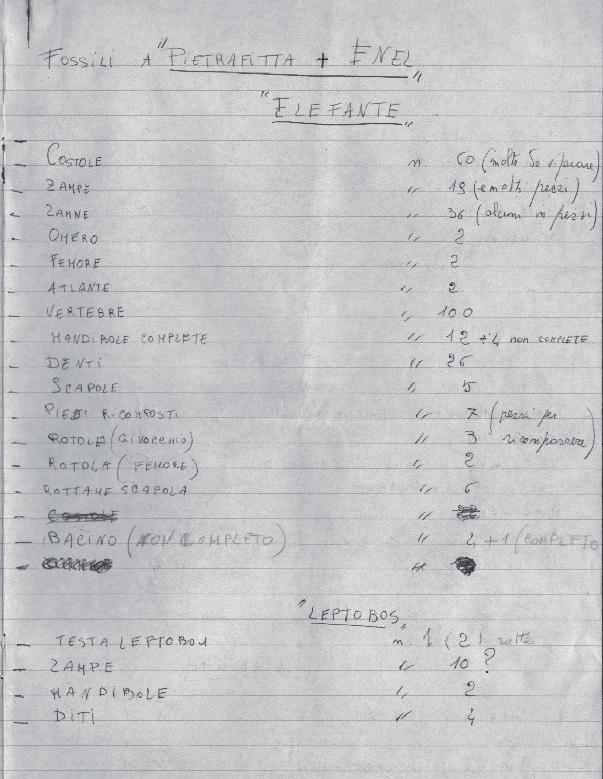 FOSSILI A "PIETRAFITTA + ENEL"
"ELEFANTE"
- COSTOLE n 60 (molte da riparare)
- ZAMPE " 19 (e molti pezzi)
- ZANNE " 36 (alcuni in pezzi)
- OMERO " 2
- FEMORE " 2
- ATLANTE " 2
- VERTEBRE " 100
- MANDIBOLE COMPLETE " 12 + 4 NON COMPLETE
- DENTI " 26
- SCAPOLE " 5
- PIEDI RICOMPOSTI " 7 (pezzi per
- ROTOLE (GINOCCHIO) " 3 ricomporre)
- ROTOLA (FEMORE) " 2
- ROTTAME SCAPOLA " 6
- BACINO (NON COMPLETO) " 4 + 1 (COMPLETO
"LEPTOBOS"
- TESTA LEPTOBOS n 1 (2) rotte
- ZAMPE " 10 ?
- MANDIBOLE " 2
- DITI " 4